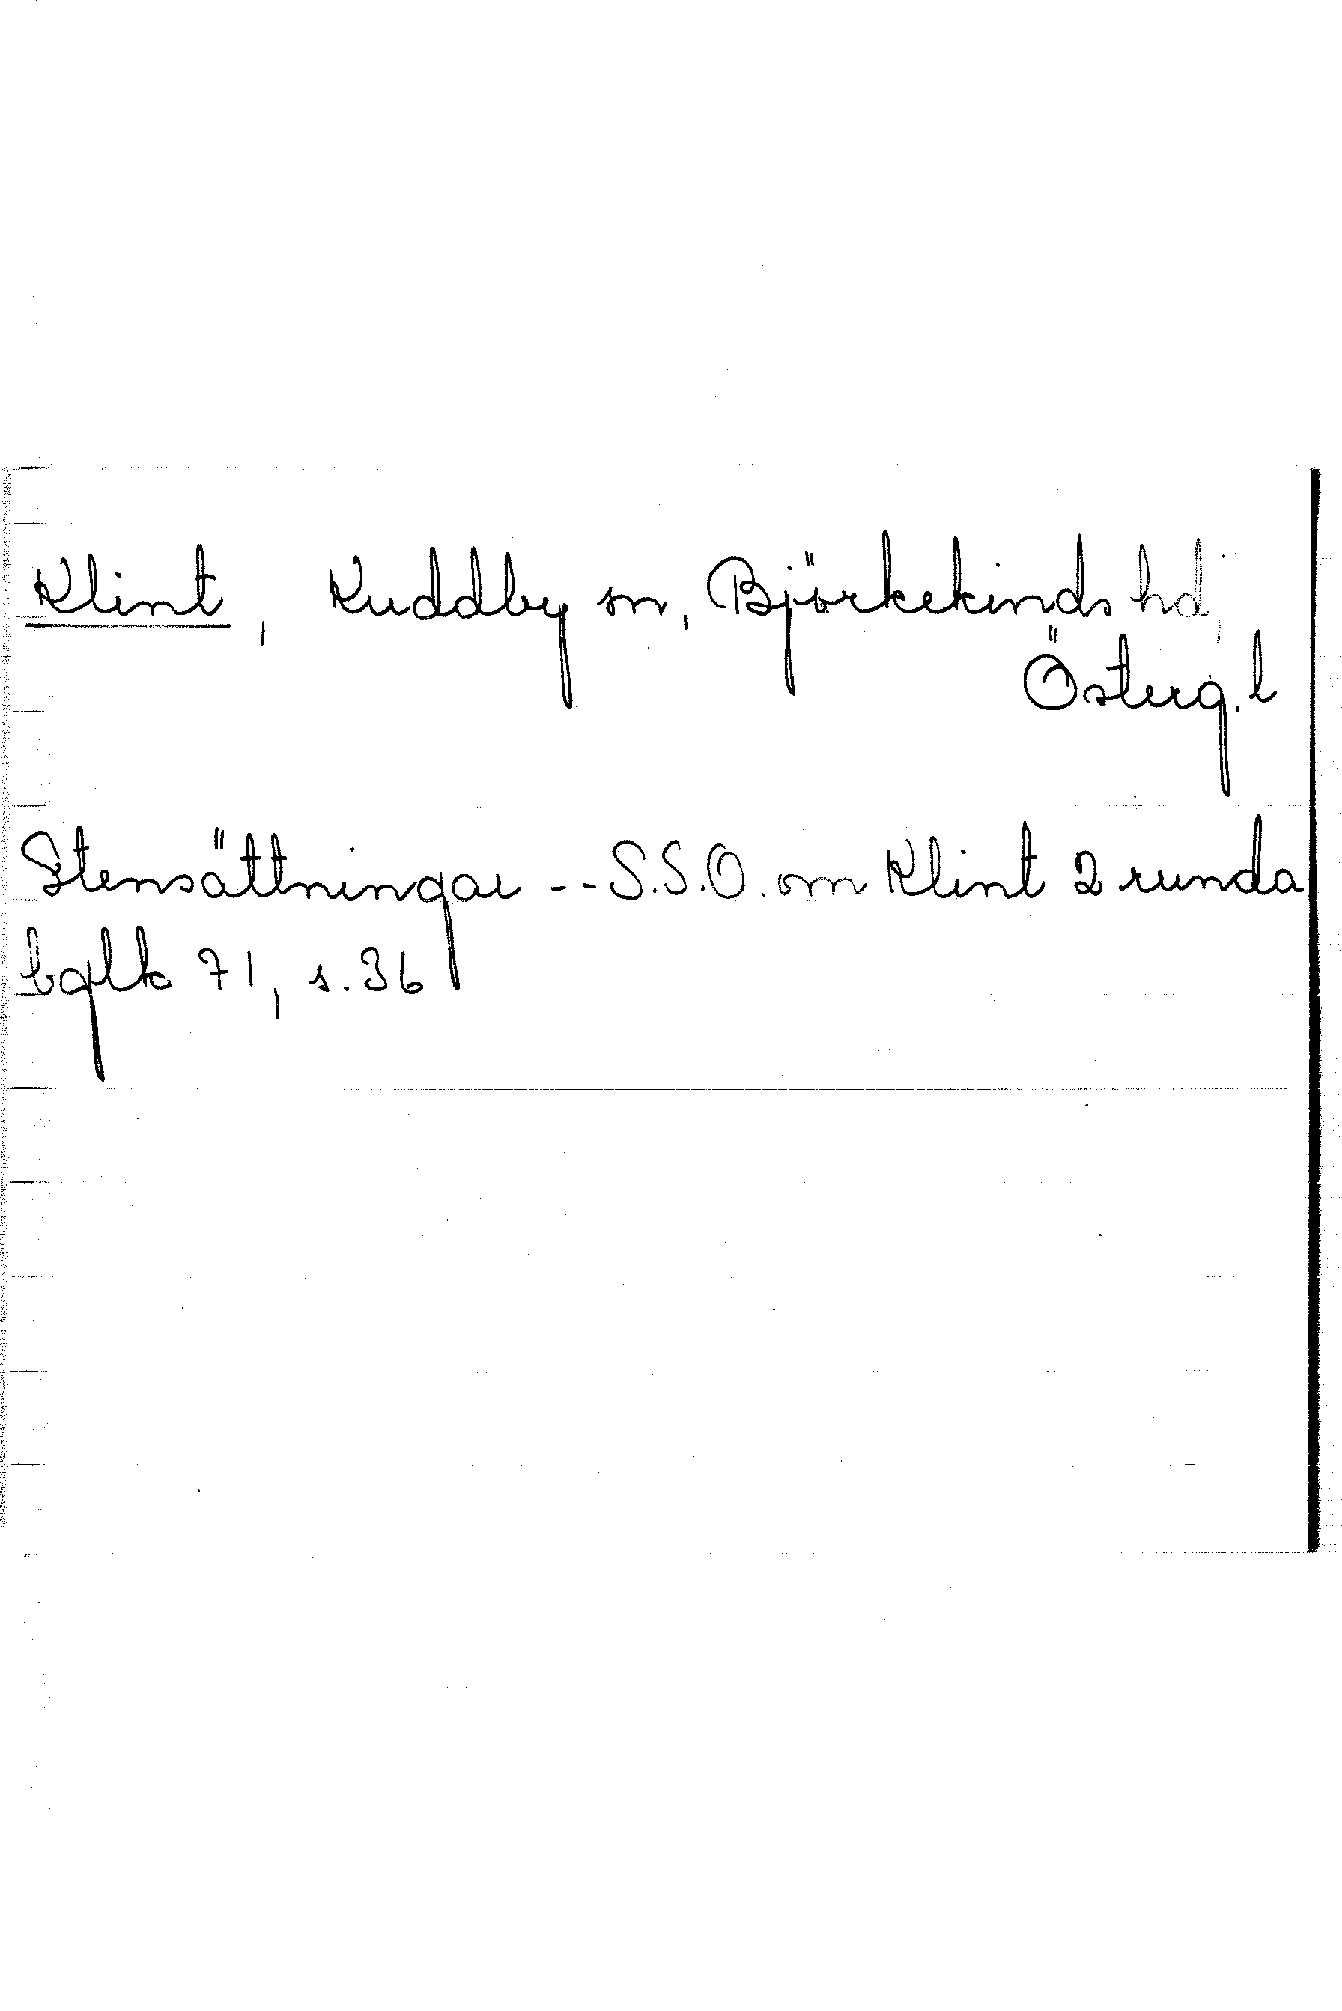 Klint, Kuddby sn, Björkekinds hd,
Österg. l
Stensättningar -- S.S.O. om Klint 2 runda
bglk 71, s. 36